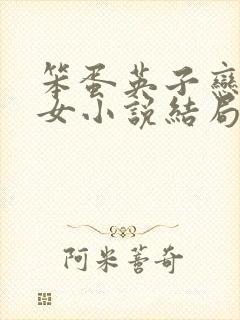 笨蛋英子戀
女小說結局
阿米蒼奇